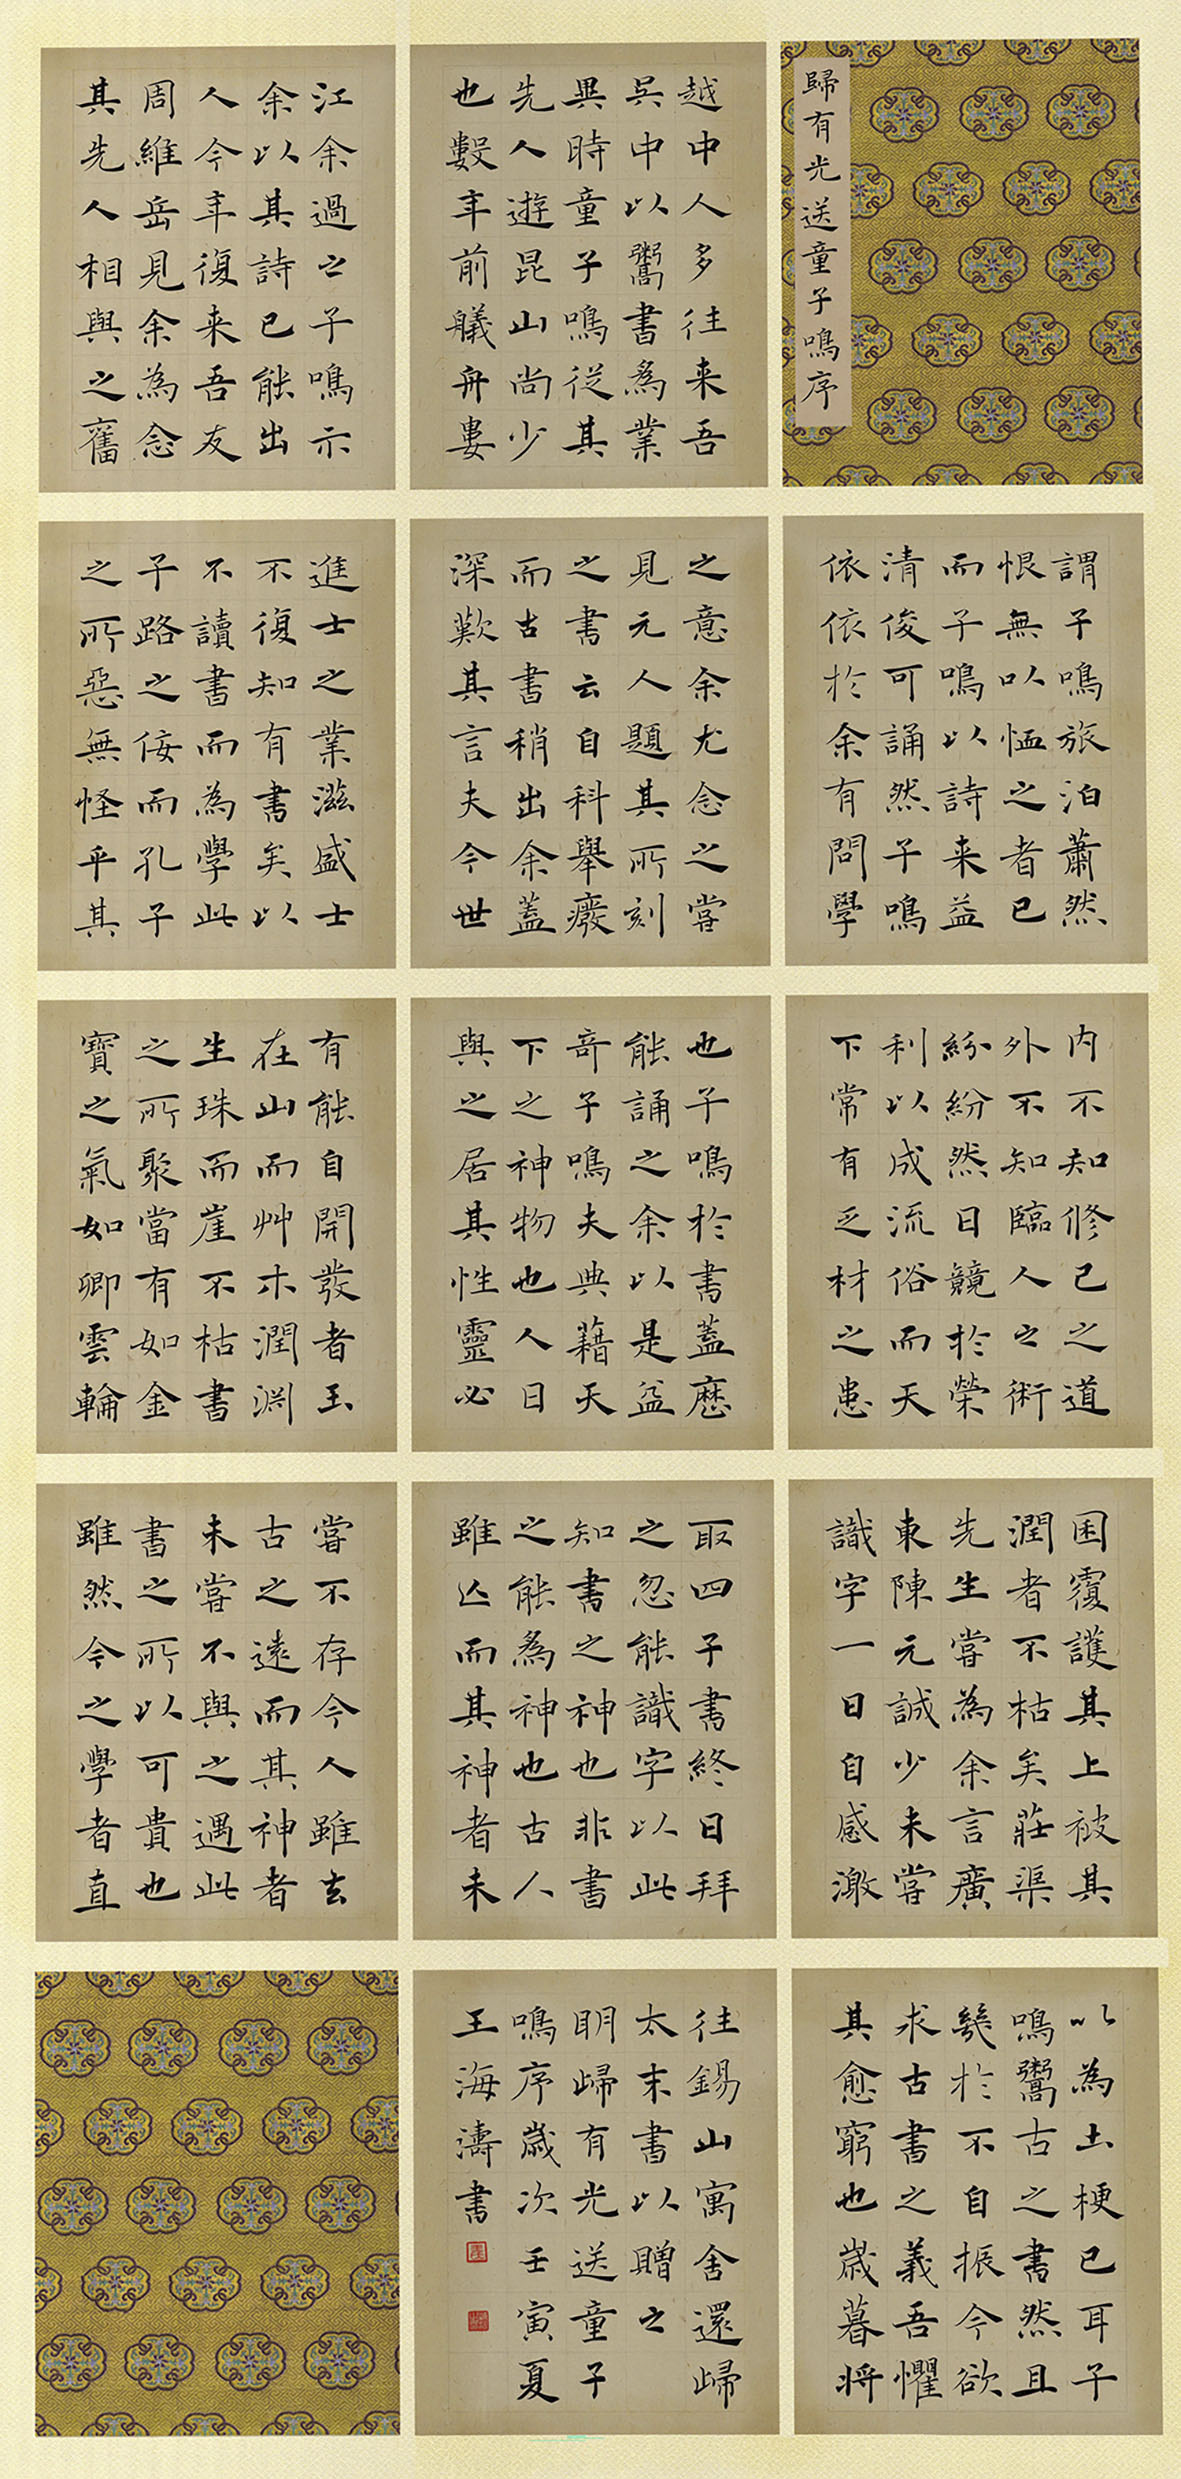 歸有光送童子鳴序
越中人多往来吾
吳中以鬻書為業
異時童子鳴從其
先人遊昆山尚少
也數年前艤舟婁
江余過之子鳴示
余以其詩已能出
人今年復来吾友
周維岳見余為念
其先人相與之舊
謂子鳴旅泊蕭然
恨無以恤之者已
而子鳴以詩来益
清俊可誦然子鳴
依依於余有問學
之意余尤念之嘗
見元人題其所刻
之書云自科舉廢
而古書稍出余蓋
深歎其言夫今世
進士之業滋盛士
不復知有書矣以
不讀書而為學此
子路之佞而孔子
之所惡無怪乎其
内不知修己之道
外不知臨人之術
紛紛然日競於榮
利以成流俗而天
下常有乏材之患
也子鳴於書蓋歷
能誦之余以是益
奇子鳴夫典籍天
下之神物也人日
與之居其性靈必
有能自開發者玉
在山而艸木潤淵
生珠而崖不枯書
之所聚當有如金
寶之氣如卿雲輪
囷覆護其上被其
潤者不枯矣莊渠
先生嘗為余言廣
東陳元誠少未嘗
識字一日自感激
取四子書終日拜
之忽能識字以此
知書之神也非書
之能為神也古人
雖亡而其神者未
嘗不存今人雖去
古之遠而其神者
未嘗不與之遇此
書之所以可貴也
雖然今之學者直
以為土梗已耳子
鳴鬻古之書然且
幾於不自振今欲
求古書之義吾懼
其愈窮也歲暮將
往錫山寓舍還歸
太末書以贈之
明歸有光送童子
鳴序歲次壬寅夏
王海濤書